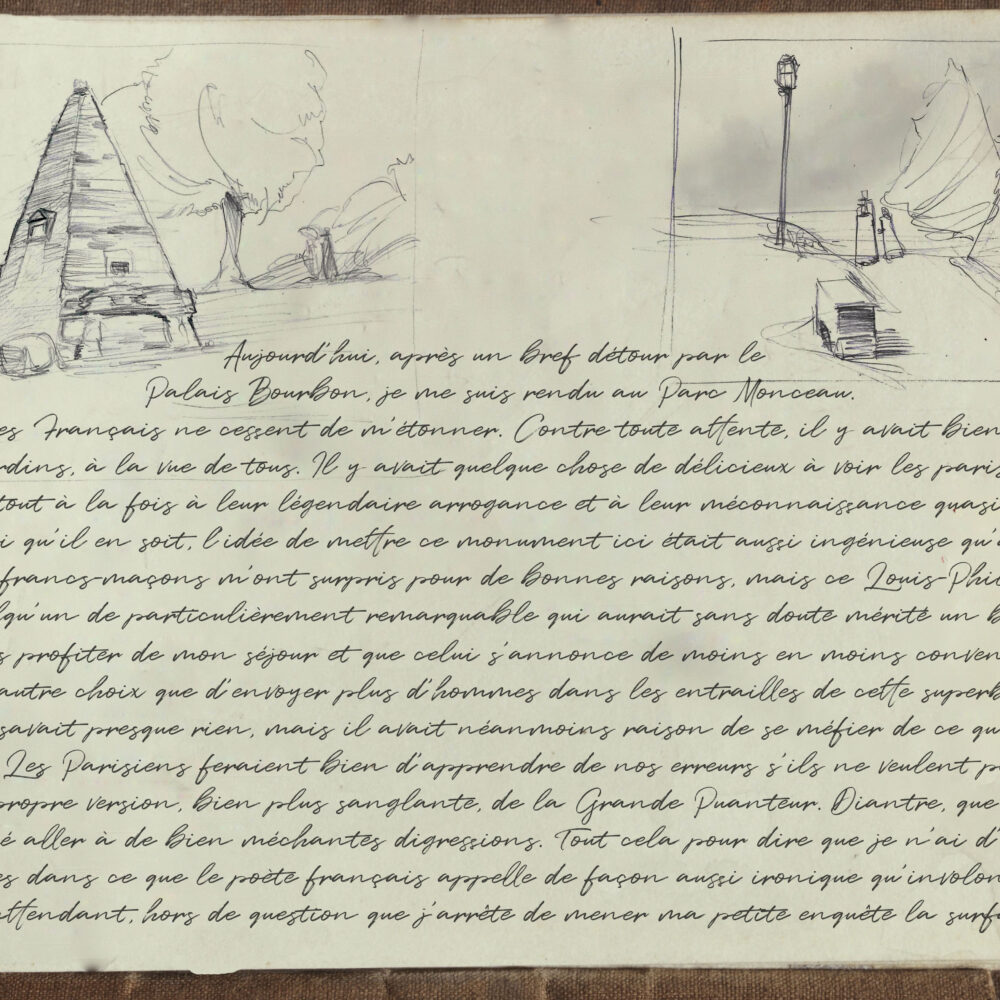 Aujourd'hui, après un bref détour par le
Palais Bourbon, je me suis rendu au Parc Monceau.
es Français ne cessent de m'étonner. Contre toute attente, il y avait bien
rdins, à la vue de tous. Il y avait quelque chose de délicieux à voir les paris
tout à la fois à leur légendaire arrogance et à leur méconnaissance quasi
i qu'il en soit, l'idée de mettre ce monument ici était aussi ingénieuse qu'
francs-maçons m'ont surpris pour de bonnes raisons, mais ce Louis-Phi
lqu'un de particulièrement remarquable qui aurait sans doute mérité un b
s profiter de mon séjour et que celui s'annonce de moins en moins conven
autre choix que d'envoyer plus d'hommes dans les entrailles de cette superb
savait presque rien, mais il avait néanmoins raison de se méfier de ce qu
Les Parisiens feraient bien d'apprendre de nos erreurs s'ils ne veulent p
propre version, bien plus sanglante, de la Grande Puanteur. Diantre, que
é aller à de bien méchantes digressions. Tout cela pour dire que je n'ai d'
es dans ce que le poète français appelle de façon aussi ironique qu'involon
attendant, hors de question que j'arrête de mener ma petite enquête la surf